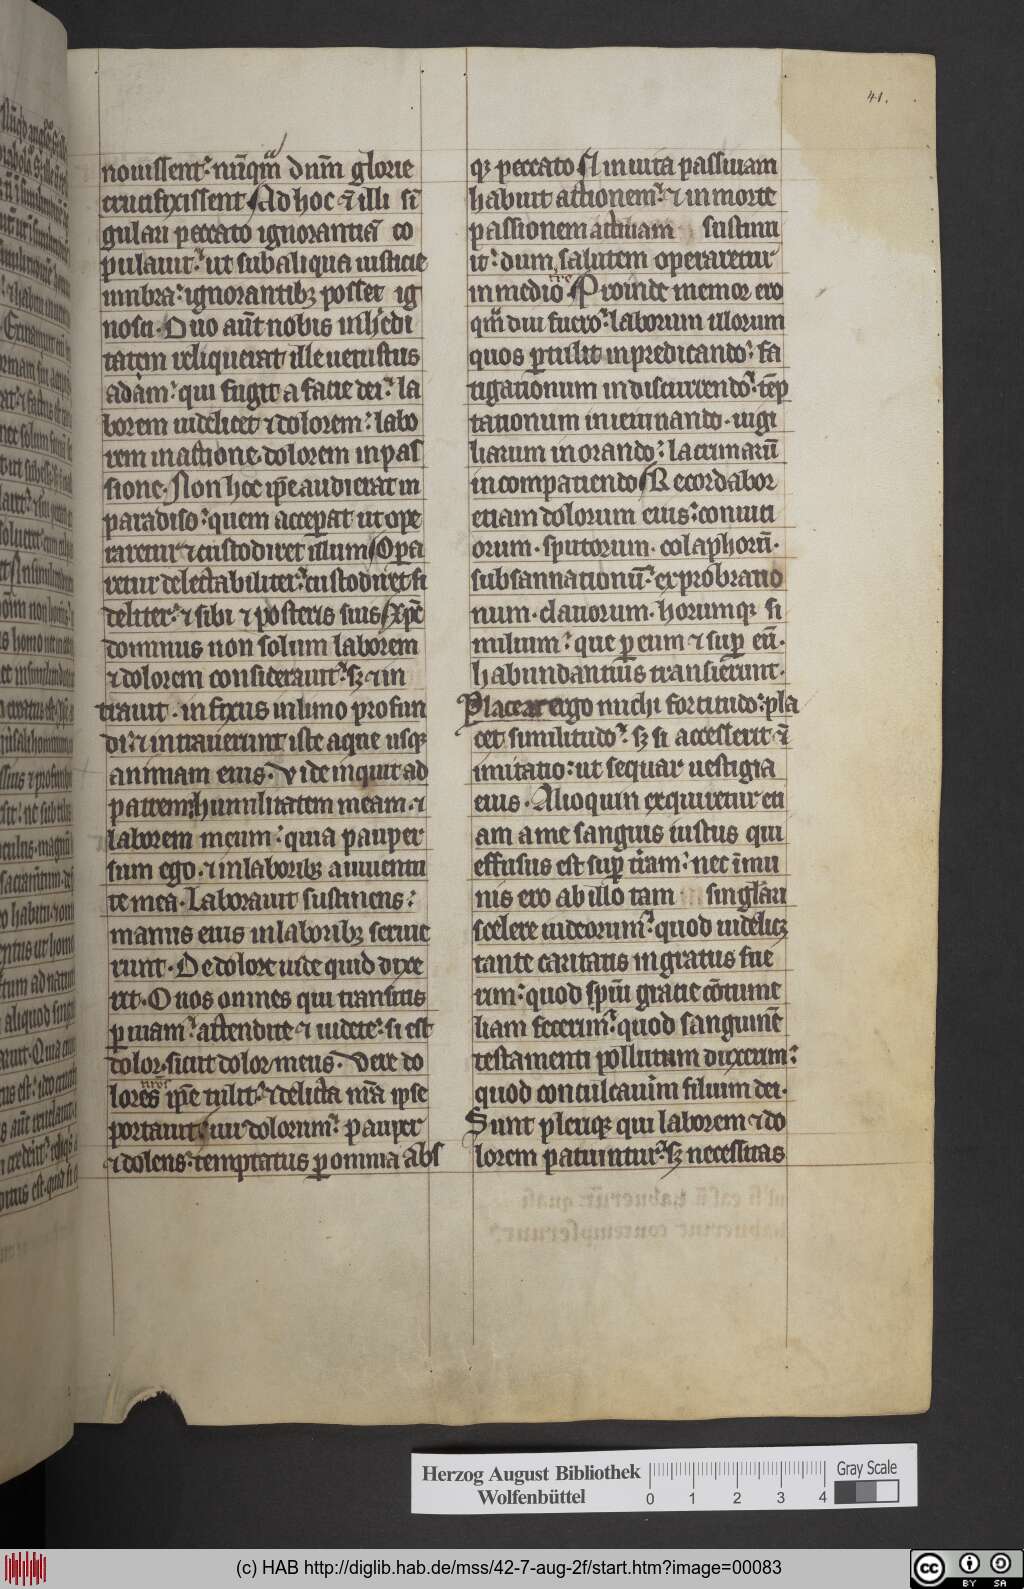 41.
nouissent. nūqᷓm dn̄m glorie
crucifixissent Ad hoc ⁊ illi si
gulari peccato ignorantiā co
pulauit. ut sub aliqua iusticie
umbra. ignorantibꝫ posset ig
nosci. Duo aūt nobis in hedi
tatem reliquerat ille uetustus
adam. qui fugit a facie dei. la
borem uidelicet ⁊ dolorem. labo
rem in actione dolorem in pas
sione. Non hec ip̄e audierat in
paradiso. quem acceꝑat ut ope
raretur ⁊ custodiret illum Opa
retur delectabiliter. custodiret fi
deliter. ⁊ sibi ⁊ posteris suis Xp̄c
dominus non solum laborem
⁊ dolorem considerauit. sꝫ ⁊ in
trauit. infixus in limo profun
di. ⁊ intrauerunt iste aque usqꝫ
animam eius. Vide inquit ad
patrem humilitatem meam. ⁊
laborem meum. quia pauper
sum ego. ⁊ in laboribꝫ a iuuentu
te mea. Laborauit sustinens.
manus eius in laboribꝫ seruie
runt. De dolore uide quid dixe
rit. O uos omnes qui transitis
ꝑ uiam. attendite ⁊ uidete. si est
dolor. sicut dolor meus. Vere do
lores nr̄os ip̄e tulit. ⁊ delicta nr̄a ipse
portauit uir dolorum. pauper
⁊ dolens. temptatus ꝑ omnia abs
qꝫ peccato Et in uita passiuam
habuit actionem. ⁊ in morte
passionem actiuam sustinu
it. dum salutem operaretur
in medio tr̄e Proinde memor ero
qm̄ diu fuero. laborum illorum
quos ꝑtulit in predicando. fa
tigationum in discurrendo. tēp
tationum in ieiunando. uigi
liarum in orando. lacrimarū
in compatiendo Recordabor
etiam dolorum eius. conuiti
orum. sputorum. colaphorū.
subsannationū. exprobratio
num. clauorum. horumqꝫ si
milium. que ꝑ eum ⁊ suꝑ eū.
habundantius transierunt.
Placeat ergo michi fortitudo. pla
cet similitudo. sꝫ si accesserit ⁊
imitatio. ut sequar uestigia
eius. Alioquin exquiretur eti
am a me sanguis iustus qui
effusus est suꝑ t̄ram. nec īmu
nis ero ab illo tam singlari
scelere iudeorum. quod uidelicꝫ
tante caritatis ingratus fue
rim. quod spūi gracie cōtume
liam fecerim. quod sanguinē
testamenti pollutum duxerim.
quod conculcauim filium dei.
Sunt pleriqꝫ qui laborem ⁊ do
lorem patiuntur. sꝫ necessitas
Herzog August Bibliothek
Wolfenbüttel
0 1 2 3 4
Gray Scale
(c) HAB http://diglib.hab.de/mss/42-7-aug-2f/start.htm?image=00083
cc BY SA